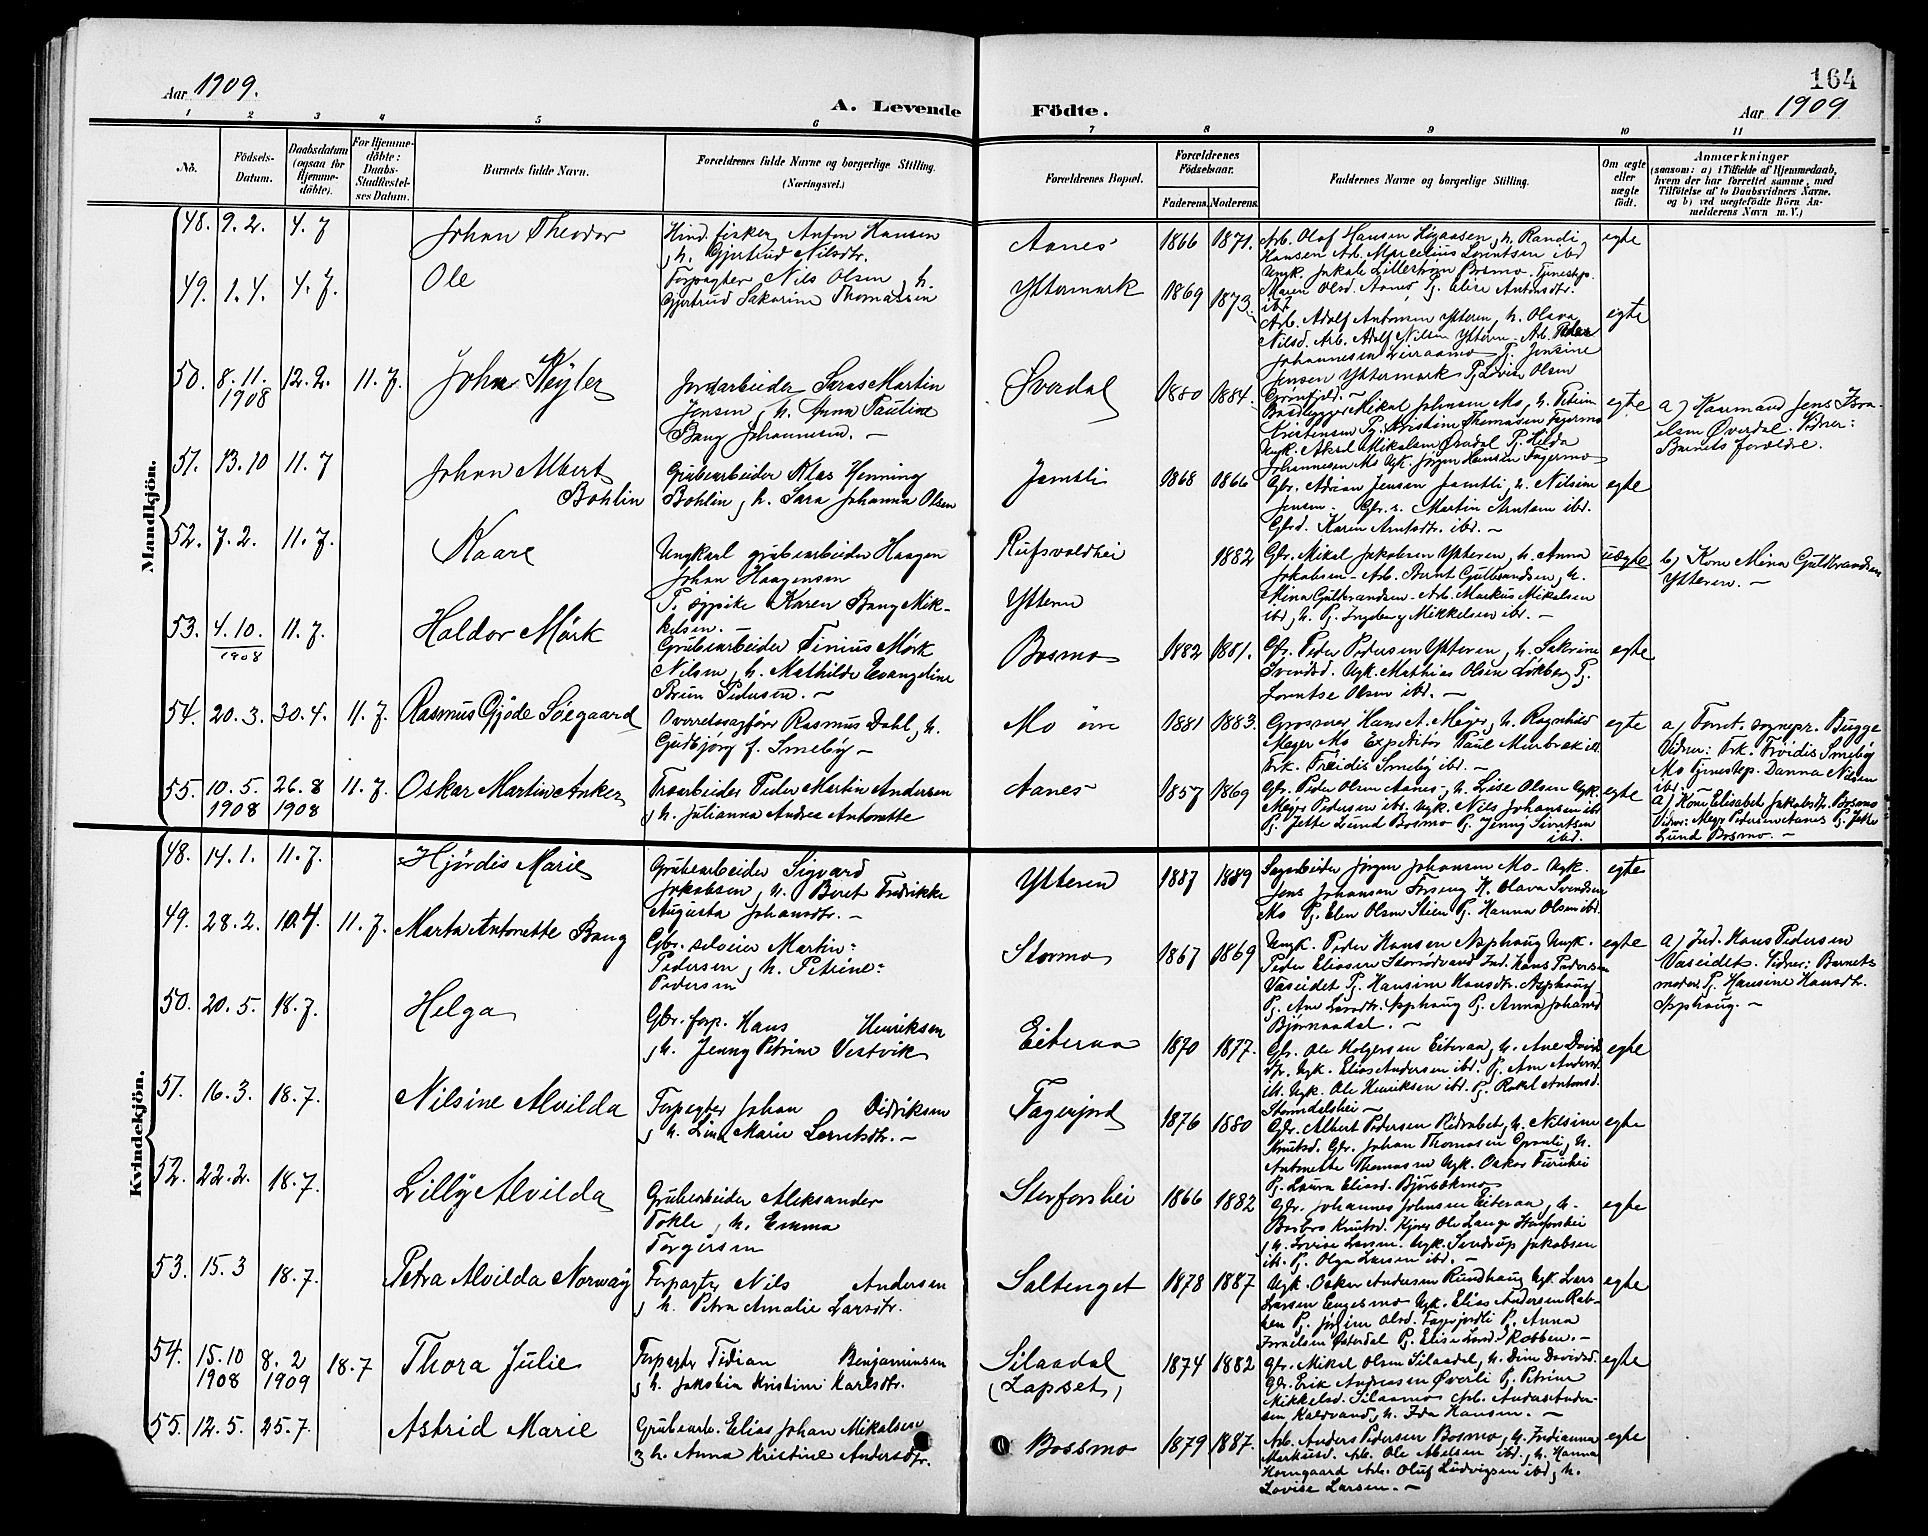 164
Aar 1909.
A. Levende Födte.
Aar 1909
1 2 3 4 5 6 7 8 9 10 11
No.
Födsels-Datum.
Daabsdatum (ogsaa for Hjemme-döbte).
For Hjemme-döbte: Daabs-Stadfæstel-ses Datum.
Barnets fulde Navn.
Forældrenes fulde Navne og borgerlige Stilling. (Næringsvei.)
Forældrenes Bopæl.
Forældrenes Födselsaar.
Faderens. Moderens.
Faddernes Navne og borgerlige Stilling.
Om ægte eller uægte födt.
Anmærkninger
(saasom: a) i Tilfælde af Hjemmedaab,
hvem der har forrettet samme, med
Tilföielse af to Daabsvidners Navne,
og b) ved uægtefödte Börn An-
melderens Navn m. V.)
Mandkjön.
48. 9.2. 4.7 Johan Theodor
Hind. fisker Anton Hansen
, h. Gjertrud Nilsdtr.
Aanes 1866 1871.
Arb. Olaf Hansen Høgaasen, h. Randi
Hansen Arb. Marcelius Lorntsen ibd
Ungk. Jakob Lillestrøm Bosmo. Tjenestep.
Maren Olsd. Aanes, Pg. Elise Antonsdtr.
ibd
egte
49. 1.4. 4.7. Ole
Forpagter Nils Olsen, h.
Gjertrud Sakarine Thomassen
Yttermark 1869 1873.
Arb. Adolf Antonsen Ytteren, h. Olava
Nilsd. Arb. Adolf Nilsen Ytteren. Arb. Peder
Johannesen Liraamo Pg. Jensine
Jensen Yttermark Pg Lovise Olsen
Grønfjeld. –
egte
50. 8.11. 1908 12.2. 11.7. John Keyler
Jernarbeider Saras Martin
Jensen, h. Anna Pauline
Bang Johannesen. –
Sverdal 1880 1884.
Mikal Johnsen Mo, h. Petrine
Kristensen Pg. Kristine Thomasen Fagermo
Ungk. Aksel Mikalsen Øverdal Pg. Hilda
Johannesen Mo Ugk. Jørgen Hansen Fagermo
egte
a) Kaarmand Jens Isra-
elsen Øverdal. Vidner:
Barnets forældre.
51. 13.10 11.7 Johan Albert Bohlin
Grubearbeider Klas Henning
Bohlin, h. Sara Johanna Olsen
Jamtli 1868 1866
Gbr. Adrian Jensen Jamtli, h. Nilsine
Jensen. Gbr. s. Martin Arntsen ibd.
Gbrd. Karen Arntsdtr. ibd. –
egte
52. 7.2. 11.7. Kaare
Ungkarl grubearbeider Haagen
Johan Haagensen
P. sypike Karen Bang Mik-
kelsen. –
Rufsvoldhei
Ytteren
1882
Gbr. Mikal Jakobsen Ytteren, h. Anna
Jakobsen – Arb. Bernt Gulbrandsen, h.
Mina Gulbrandsen. Arb. Markus Mikalsen
ibd, h. Pg. Ingeborg Mikkelsen ibd. –
uegte
b) Kone Mina Guldbrandsen
Ytteren. –
53. 4.10. 1908 11.7. Haldor Mørk
Grubearbeider Tinius Mørk
Nilsen, h. Mathilde Evangeline
Brun Pedersen. –
Bosmo 1882 1881.
Gbr. Peder Pedersen Ytteren, h. Sakrine
Svendsd. Ugk. Mathias Olsen Løkberg Pg.
Lorntse Olsen ibd. –
egte
54. 20.3. 30.4. 11.7. Rasmus Gjøde Søegaard
Overretssagfører Rasmus Dahl, h.
Gudbjørg f. Smeby –
Mo 1881 1883.
Grosserer Hans A. Meyer, h. Ragnhild
Meyer Mo Expeditør Paul ibd.
Frk. Frøidis Smeby ibd. –
egte
a) Forst. sognepr. Bugge
Vidner: Frk. Frøidis Smeby
Mo Tjenestep. Danna Nilsen
ibd. –
55. 10.5. 1908 26.8 1908 11.7. Oskar Martin Anker
Træarbeider Peder Martin Andersen
, h. Julianna Andrea Antonette
Aanes 1857 1869
Gbr. Peder Olsen Aanes, h. Lise Olsen Ugk.
Meyer Pedersen ibd. Ugk. Nils Johansen ibd
Pg. Jette Lund Bosmo Pg. Jenny Sivertsen
ibd.
egte
a) Kone Elisabet Jakobsdtr. Bosmo
Vidner: Meyer Pedersen Aanes Pg. Jette
Lund Bosmo. –
Kvindekjön.
48. 14.1. 11.7. Hjørdis Marie
Grubearbeider Sigvard
Jakobsen, h. Beret Fredrikke
Augusta Johansdtr. –
Ytteren 1887 1889
Sagarbeider Jørgen Johansen Mo – Ugk.
Jens Johansen K. Olava Svendsen
Mo Pg. Elen Olsen Stien Pg. Hanna Olsen ibd.
egte
49. 28.2. 10.4. 11.7. Marta Antonette Bang
Gbr. selveier Martin
Pedersen, h. Petrine
Pedersen
Stormo 1867 1869
Ungk. Peder Hansen Asphaug Ungk.
Peder Eliasen Ind. Hans Pedersen
Vaseidet Pg. Hansine Hansdtr. Asphaug
Pg. Ane Asphaug Pg. Anna Johansd
Bjørnaadal. –
egte
a) Ind. Hans Pedersen
Vaseidet. Vidner: Barnets
moder Pg. Hansine Hansdtr.
Asphaug. –
50. 20.5. 18.7. Helga
Gbr. forp. Hans Henriksen
, h. Jenny Petrine Vestvik
Eiteraa 1870 1877.
Gbr. Ole Holgersen Eiteraa, h. Ane David
dtr. Ugk. Elias Andersen ibd. Pg. Ane Andersd.
ibd. Ugk. Ole Henriksen ibd. Pg. Rakel Antonsd.
Stormdalshei –
egte
51. 16.3. 18.7. Nilsine Alvilda
Forpagter Johan Didriksen
, h. Lina Marie Larntsdtr. –
Fagerjord 1876 1880
Gbr. Albert Pedersen h. Nilsine
Knutsd. Gbr. Johan Thomasen Granli, h.
Antonette Thomasen Ugk. Oskar Furuhei
Pg. Laura Eliasd. Bjørbækmo
egte
52. 22.2. 18.7. Lilly Alvilda
Grubearbeider Aleksander
Tokle, h. Emma
Torgersen
Storforshei 1866 1882
Gbr. Johannes Johnsen Eiteraa, h.
Barbro Knutsd. Kjører Ole Lange Storforshei
, h. Lovise Larsen. Ugk. Jakobsen
ibd. Pg. Olga Larsen ibd. –
egte
53. 15.3 18.7. Petra Alvilda Norway
Forpagter Nils Andersen
, h. Petra Amalie Larsdtr.
Saltenget 1878 1887
Ugk. Oskar Andersen Rundhaug Ugk. Lars
Larsen Engesmo Ugk. Elias Andersen Rab-
ben Pg. Olsd. Fagerjordli P. Anna
Israelsen Østerdal Pg. Elise Larsd. Robben. –
egte
54. 15.10 1908 8.2 1909 18.7 Thora Julie
Forpagter Tidian Benjaminsen
, h. Jakobia Kristine Karlsdtr.
Silaadal
(Lapset) 1874 1882
Gbr. Mikal Olsen Silaadal, h. Davidsd.
Gbr. Erik Andreasen Øverli Pg. Petrine
Mikkelsd. Silaamo Arb. Andersen
Kaldvand, h. Ida Hansen. –
egte
55. 12.5. 25.7. Astrid Marie
Grubearb. Elias Johan Mikalsen
h. Anna Kristine Andersdtr.
Bossmo 1879 1887.
Arb. Anders Pedersen Bosmo, h. Indianna
Markusd. Arb. Ole Abelsen ibd, h. Hanna
Korngaard Arb. Oluf Ludvigsen ibd, h.
Lovise Larsen. –
egte